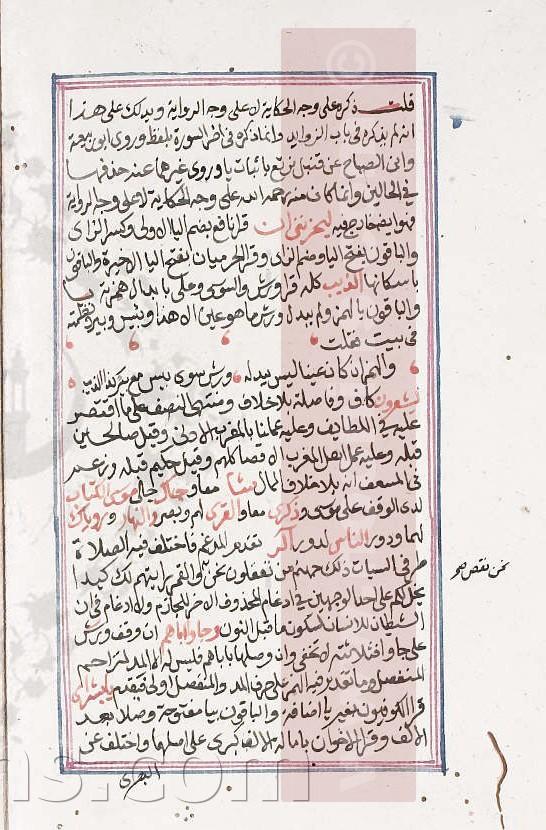 قلت ذكره على وجه الحكاية لا على وجه الرواية ويدلك على هذا
انه لم يذكره في باب الزوايد وانما ذكره في اخر السورة بلفظ وروى ابو ربيعة
وابن الصباح عن قنبل نرتع باثبات يا وروى غيرهما عنه حذفها
في الحالين وانما كان منه رحمه الله على وجه الحكاية لا على وجه الرواية
فهو ايضا خارج فيه ليحزنني ان قرا نافع بضم اليا الاولى وكسر الزاى
والباقون بفتح اليا وضم الزاى وقرا الحرميان بفتح اليا الاخيرة والباقون
باسكانها الذيب كله قرا ورش والسوسى وعلى بابدال همزه يا
والباقون بالهمز ولم يبدل ورش ما هو عين الا هذا وبئس وبير ونظمته
فى بيت فقلت
والهمز ان كان عينا ليس يبدله ورش سوى بيس مع بير كذا الذيب
يشعرون كاف وفاصلة بلا خلاف ومنتهى النصف على ما اقتصر
عليه فى اللطايف وعليه عملنا بالمغرب الادنى وقيل صالحين
قبله وعليه عمل اهل المغرب الاقصا كلهم وقيل حكيم قبله وزعم
فى المسعف انه بلا خلاف الممال معا وجاك جلى موسى الكتاب
لدى الوقف على موسى وذكرى معا والقرى لهم وبصر والنهار ورؤياك
لهما ودور الناس لدور الر تقدم المدغم فاختلف فيه الصلاة
طرفي السيات ذلك جهنم من نعقلون نحن والقمر رايتهم لك كيدا
يخل لكم على احد الوجهين فى ادغام المحذوف الاخر للجازم ولا ادغام فى ان
الشيطان للانسان لسكون ما قبل النون وجاو اباهم ان وقف ورش
على جاو افثلاثته لا تخفى وان وصلها باباهم فليس له الا المد لتزاحم
المنفصل وما تقدم فيه الهمز على حرف المد والمنفصل اولى فيقدم يا بشراى
قرا الكوفيون بغير يا اضافة والباقون بيا مفتوحة وصلا بعد
الالف وقرا الاخوان بامالة الالف كبرى على اصلهما واختلف عن
البصرى
نحن نقص صح
ns.com